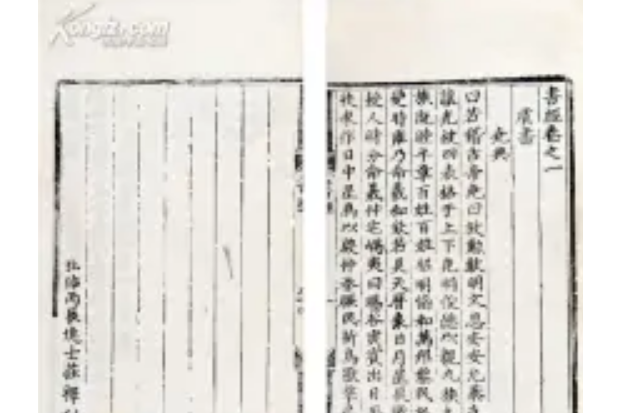 Kongfz.com
書經卷之一
虞書
堯典
曰若稽古帝堯曰放勳欽明文思安安允恭
讓光被四表格于上下克明俊德以親九族
族既睦平章百姓百姓昭明協和萬邦黎民
變時雍乃命羲和欽若昊天曆象日月星辰
授人時分命羲仲宅嵎夷曰暘谷寅賓出日
秩東作日中星鳥以殷仲春厥民析鳥獸孳
北海丙辰進士莊